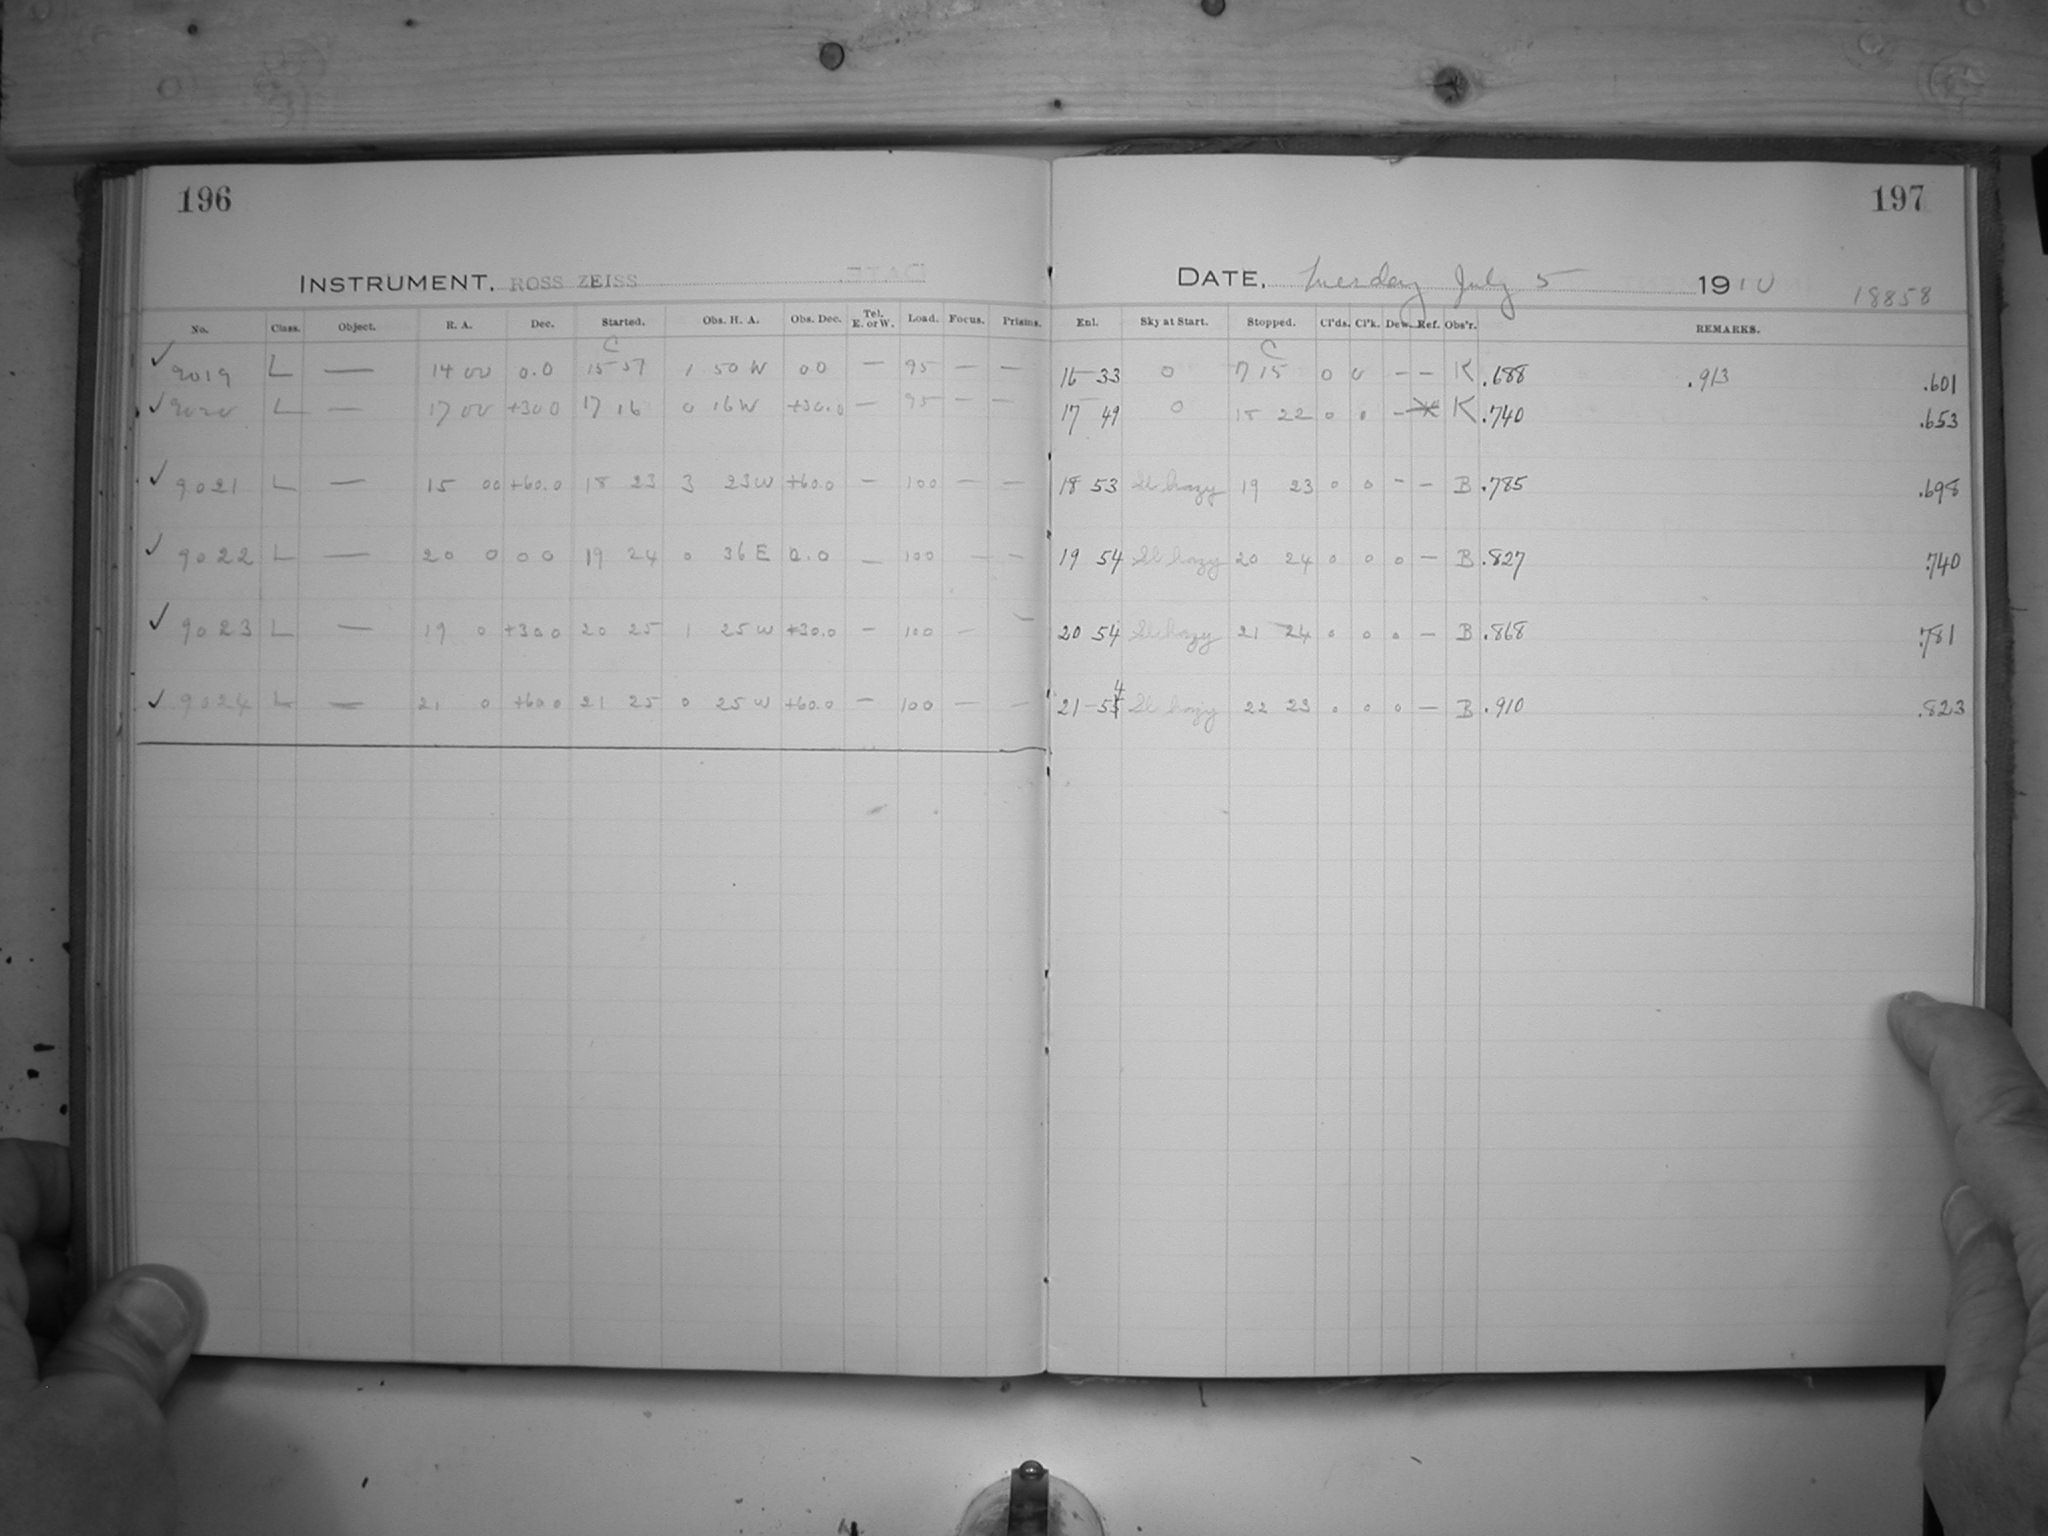 196
197
INSTRUMENT. ROSS ZEISS
DATE, Tuesday July 5 1910 18858
No. Class. Object. R. A. Dec. Started. Obs. H. A. Obs. Dec. Tel. E. or W. Load. Focus. Prisms. Enl. Sky at Start. Stopped. Cl'ds. Cl'k. Dew. Ref. Obs'r. REMARKS.
C C
✓ 9019 L — 14 00 0.0 15 57 1 50 W 00 — 95 — — 16 33 0 17 15 0 0 — — K .688 .913 .601
✓ 9020 L — 17 00 +30 0 17 16 0 16 W +30.0 — 95 — — 17 49 0 18 22 0 0 — K .740 .653
✓ 9021 L — 15 00 +60.0 18 23 3 23 W +60.0 — 100 — — 18 53 Sl hazy 19 23 0 0 - — B .785 .698
✓ 9022 L — 20 0 0 0 19 24 0 36 E 0.0 — 100 — — 19 54 Sl hazy 20 24 0 0 0 — B .827 .740
✓ 9023 L — 19 0 +30 0 20 25 1 25 W +30.0 — 100 — — 20 54 Sl hazy 21 24 0 0 0 — B .868 .781
✓ 9024 L — 21 0 +60 0 21 25 0 25 W +60.0 — 100 — — 21 54 Sl hazy 22 23 0 0 0 — B .910 .823